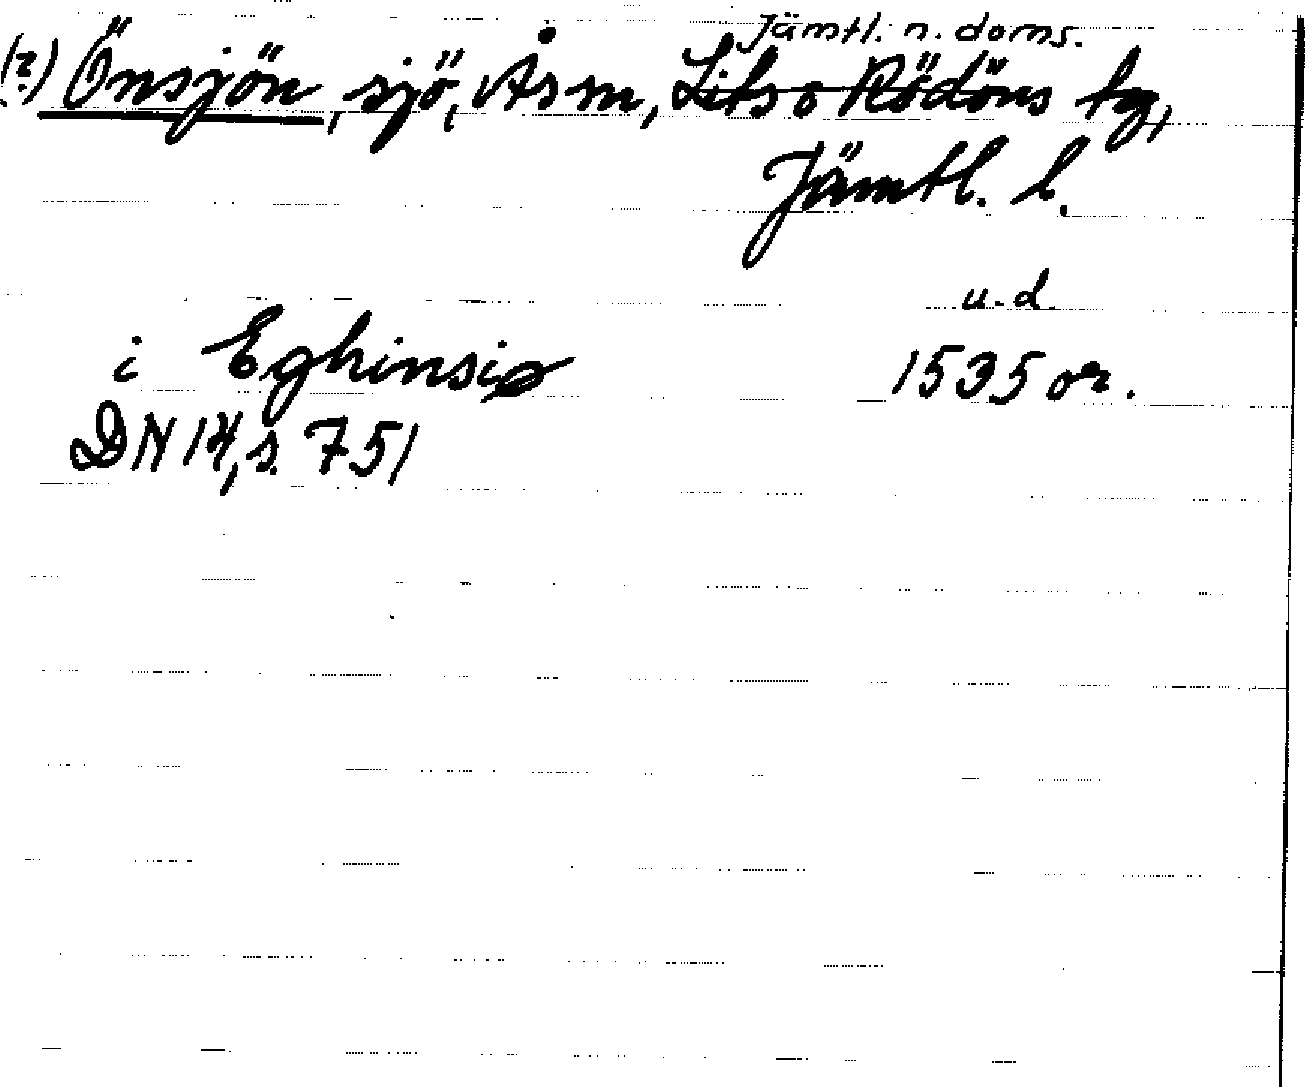 Jämtl. n. doms.
(?) Önsjön, sjö, Åsm, Lits o Rödöns tg,
Jämtl. l.
u. d.
i Eghinsiø 1535 or.
DN 14, s. 751